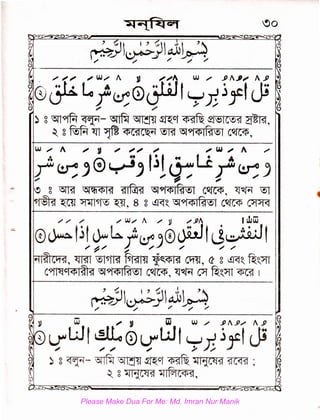 মনযিল ৩০
بِسْمِ اللهِ الرَّحْمٰنِ الرَّحِيْمِ
قُلْ اَعُوْذُ بِرَبِّ الْفَلَقِ ۝ مِنْ شَرِّ مَا خَلَقَ ۝
১ ঃ আপনি বলুন– আমি আশ্রয় গ্রহণ করছি প্রভাতের স্রষ্টার,
২ ঃ তিনি যা সৃষ্টি করেছেন তার অপকারিতা থেকে,
وَمِنْ شَرِّ غَاسِقٍ اِذَا وَقَبَ ۝ وَمِنْ شَرِّ
৩ ঃ আর অন্ধকার রাত্রির অপকারিতা থেকে, যখন তা
গভীর হয়ে সমাগত হয়, ৪ ঃ এবং অপকারিতা থেকে সেসব
النَّفّٰثٰتِ فِى الْعُقَدِ ۝ وَمِنْ شَرِّ حَاسِدٍ اِذَا حَسَدَ ۝
নারীদের, যারা তাগার গিরায় ফুৎকার দেয়, ৫ ঃ এবং হিংসা
পোষণকারীর অপকারিতা থেকে, যখন সে হিংসা করে ।
بِسْمِ اللهِ الرَّحْمٰنِ الرَّحِيْمِ
قُلْ اَعُوْذُ بِرَبِّ النَّاسِ ۝ مَلِكِ النَّاسِ ۝
১ ঃ বলুন– আমি আশ্রয় গ্রহণ করছি মানুষের রবের ;
২ ঃ মানুষের মালিকের,
Please Make Dua For Me: Md. Imran Nur Manik